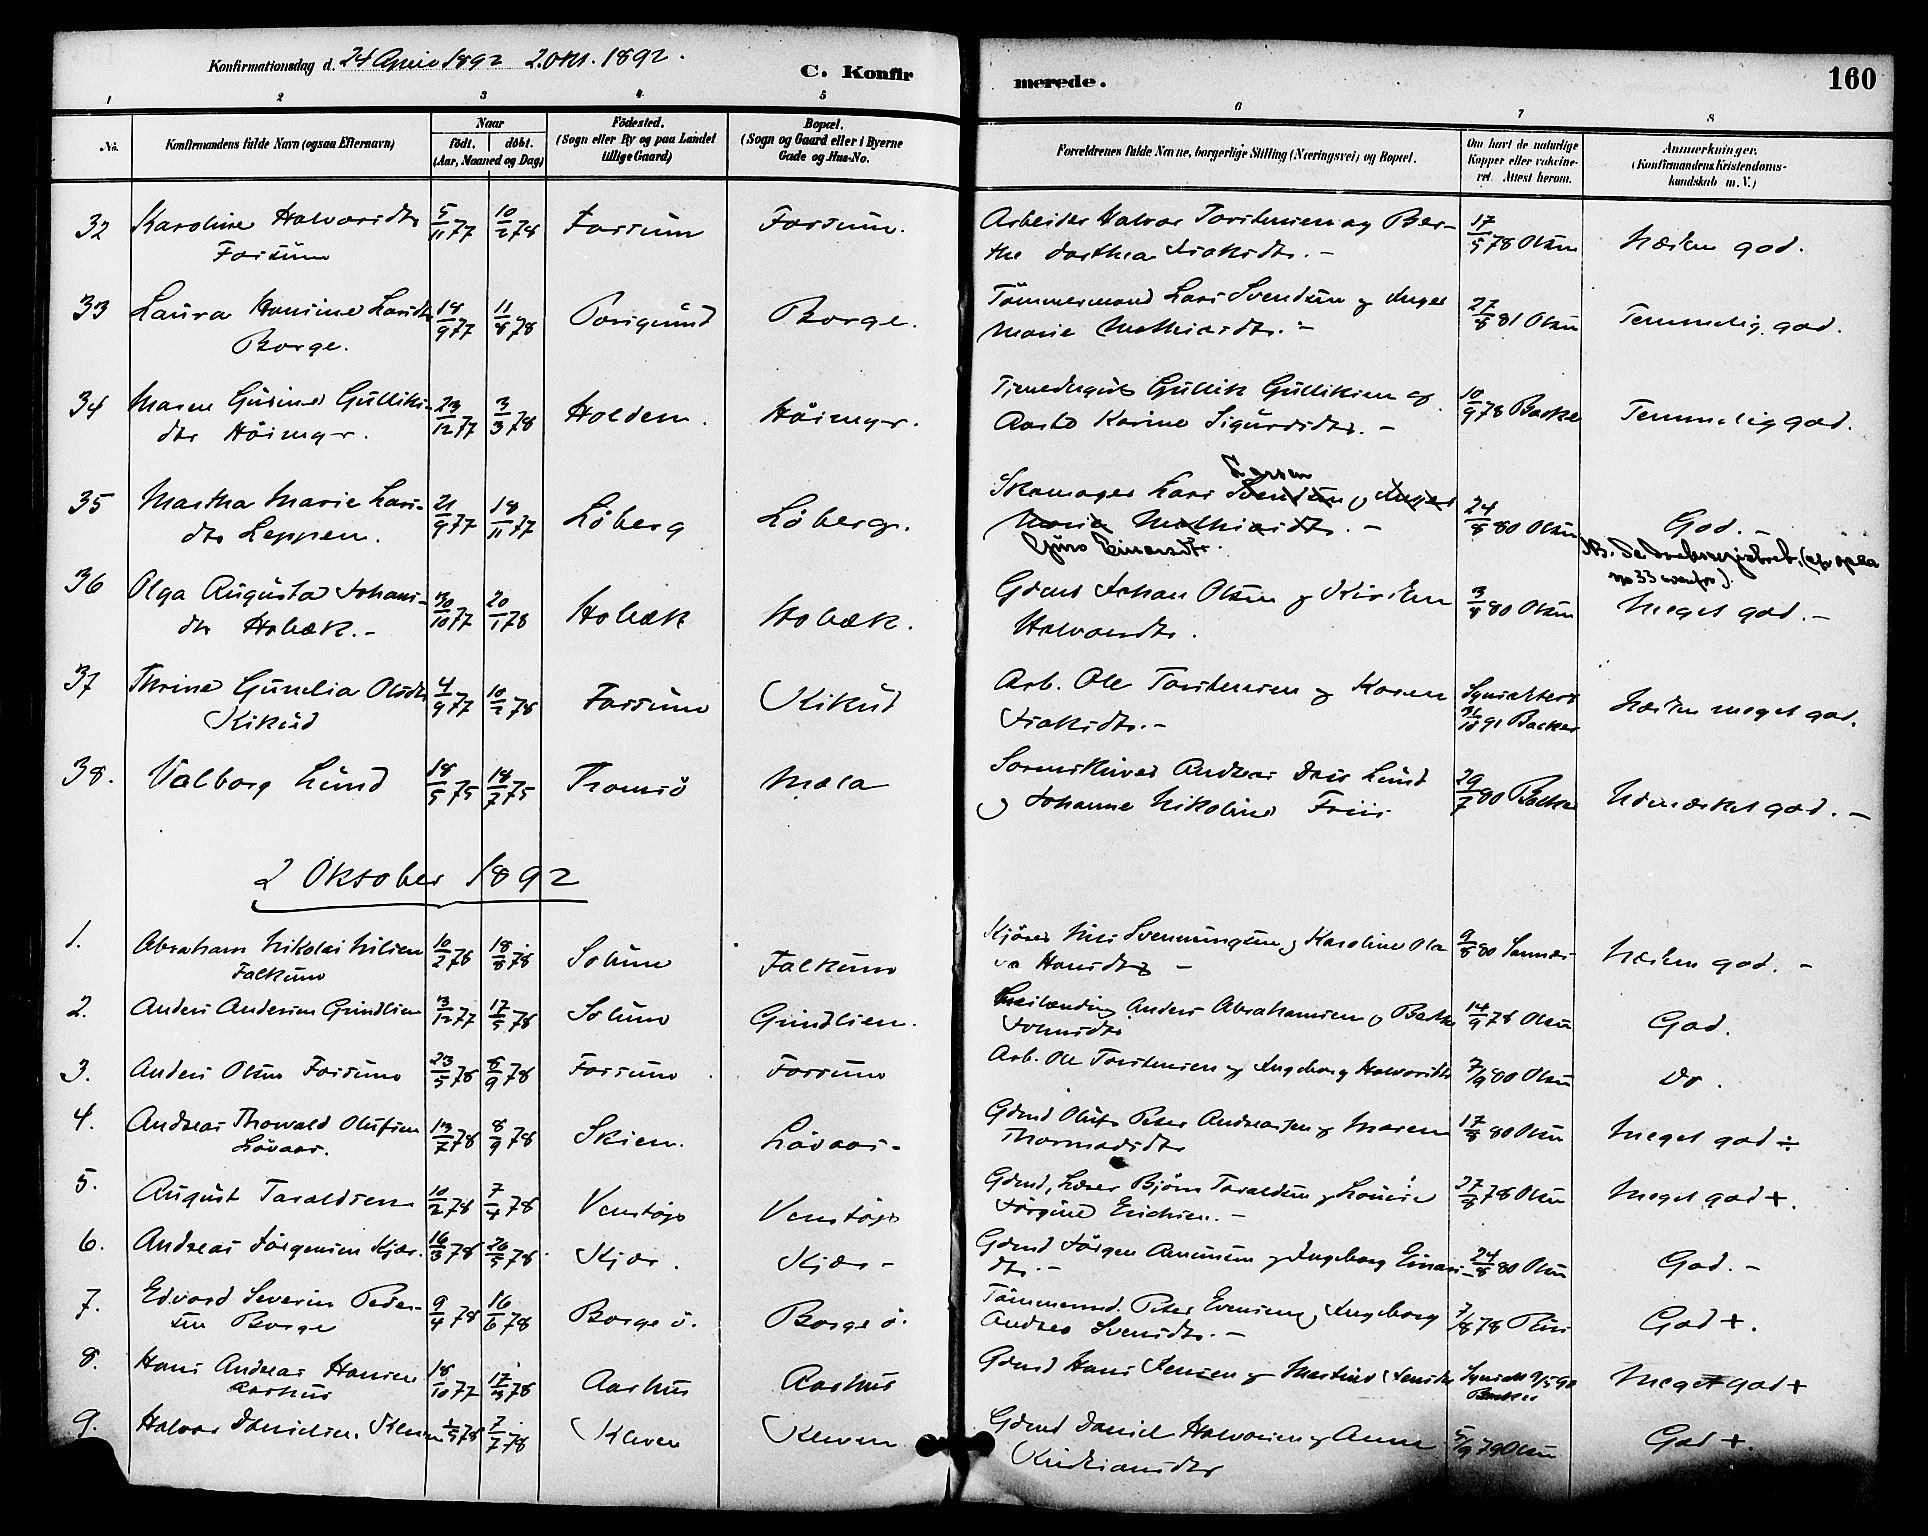 Konfirmationsdag d. 24 April 1892 2. Okt. 1892.
C. Konfirmerede.
160
1 2 3 4 5 6 7 8
No. Konfirmandens fulde Navn (ogsaa Efternavn) Naar født. døbt. (Aar, Maaned og Dag) Fødested. (Sogn eller By og paa Landet tillige Gaard) Bopæl. (Sogn og Gaard eller i Byerne Gade og Hus-No. Forældrenes fulde Navne, borgerlige Stilling (Næringsvei) og Bopæl. Om havt de naturlige Kopper eller vakcineret. Attest herom. Anmærkninger. (Konfirmandens Kristendomskundskab m. V.)
32 Karoline Halvorsdtr 5/11 77 10/2 78 Fossum Fossum. Arbeider Halvor Torstensen og Ber- 17/5 78 Olsen Næsten god.
Fossum the Dorthea Isaksdtr. -
33 Laura Hansine Larsdtr 18/9 77 11/8 78 Porsgrund Borge. Tømmermand Lars Svendsen og Inger 27/8 81 Olsen Temmelig god.
Borge. Marie Mathiasdtr. -
34 Maren Gusine Gulliks- 23/12 77 3/3 78 Holden. Høimyr. Tjenedygtig Gullik Gulliksen og 10/9 78 Backe Temmelig god.
dtr Høimyr. Aaste Karine Sigurdsdtr. -
Larsen
35 Martha Marie Lars- 21/9 77 18/11 77 Løberg Løberg. Skomager Lars Svendsen og Inger 24/8 80 Olsen God. -
dtr Leppen. Marie Mathiasdtr. -
Guro Einarsdtr.
no 33 ovenfor).
36 Olga Augusta Johans- 30/10 77 20/1 78 Holbæk Holbæk. Gdmd Johan Olsen og Kirsten 3/8 80 Olsen Meget god. -
dtr Holbæk. - Halvorsdtr.
37 Thrine Gunelia Olsdtr 4/9 77 10/2 78 Fossum Kikud Arb. Ole Torstensen og Karen Synsattest Næsten meget god.
Kikud Isaksdtr. - 31/10 91 Backer
38. Valborg Lund 18/5 75 18/7 75 Tromsø Mæla Sorenskriver Andreas Lund 29/7 80 Backe Udmærket god. -
og Johanne Nikoline Friis
2 Oktober 1892
1. Abraham Nikolai Nilsen 10/2 78 18/8 78 Solum Falkum Nils Svenningsen og Karoline Ola- 9/8 80 Næsten god. -
Falkum va Hansdtr -
2. Anders Andersen Grindlien 3/12 77 17/5 78 Solum Grindlien. Leilænding Anders Abrahamsen og Berthe 14/9 78 Olsen God.
Johnsdtr
3. Anders Olsen Fossum 23/5 78 8/9 78 Fossum Fossum Arb. Ole Torstensen og Ingeborg Halvorsdtr 7/9 80 Olsen Do.
4. Andreas Thorvald Olufsen 13/7 78 8/9 78 Skien. Løvaas. Gdmd Oluf Peter Andreassen og Maren 17/8 80 Olsen Meget god ÷
Løvaas. Thormodsdtr
5. August Taraldsen 10/2 78 7/4 78 Venstøp Venstøp Gdmd, Lærer Bjørn Taraldsen og Lovise 27/8 78 Olsen Meget god +.
Jørgine Erichsen. -
6. Andreas Jørgensen Kjær. 16/3 78 26/5 78 Kjær. Kjær - Gdmd Jørgen Amundsen og Ingeborg Einars- 24/8 80 Olsen God. -
dtr. -
7. Edvard Severin Peder- 9/4 78 16/6 78 Borge ø. Borge ø. Tømmermd. Peter Evensen og Ingeborg 7/8 78 God +.
sen Borge Andrea Svensdtr. -
8. Hans Andreas Hansen 18/10 77 17/3 78 Aarhus Aarhus Gdmd Hans Jensen og Martine Jensdtr Synsatt 9/5 90 Meget god +
Aarhus Backer
9. Halvor Danielsen Kleven 1/5 78 7/7 78 Kleven Kleven Gdmd Daniel Halvorsen og Anne 5/9 79 Olsen God +.
Kristiansdtr